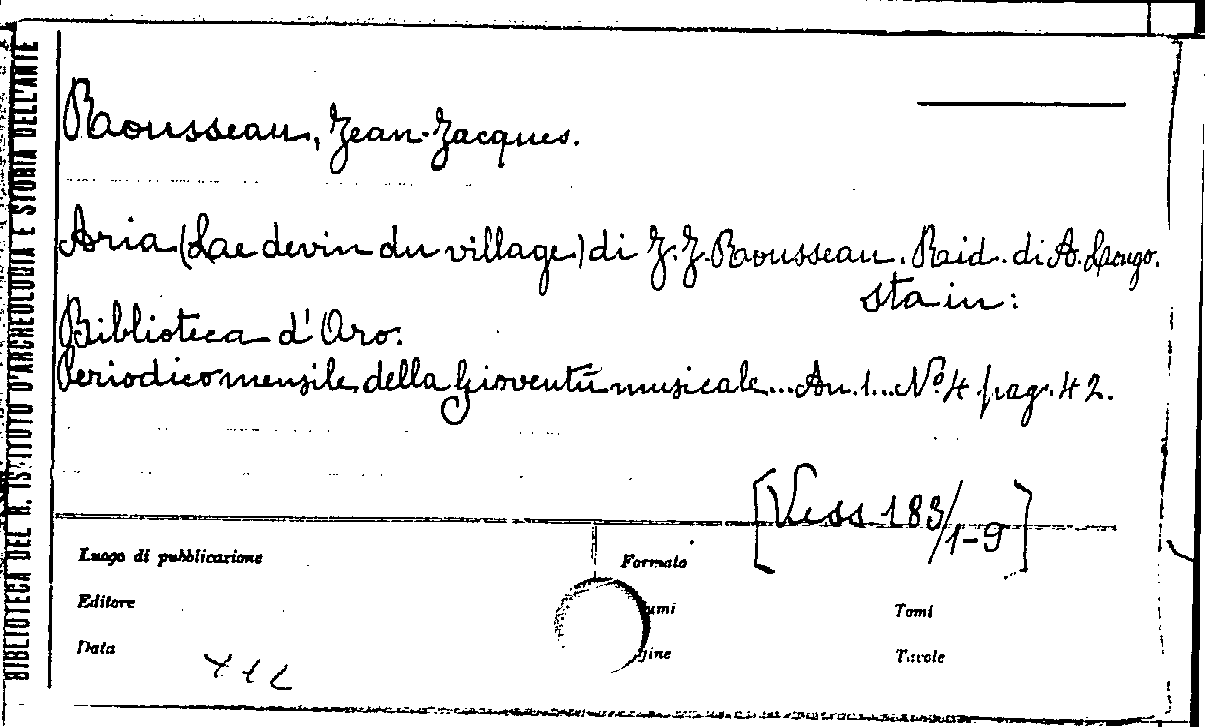 BIBLIOTECA DEL R. ISTITUTO D'ARCHEOLOGIA E STORIA DELL'ARTE
Raousseau, Jean-Jacques.
Aria (Lae devin du village) di J. J. Raousseau. Raid. di A. Longo.
sta in:
Biblioteca d'Oro.
Periodico mensile della Gioventù musicale... An. 1... Nº 4 pag. 42.
[Vess 183/1-9]
Luogo di pubblicazione
Formato
Editore
umi
Tomi
Data
gine
Tavole